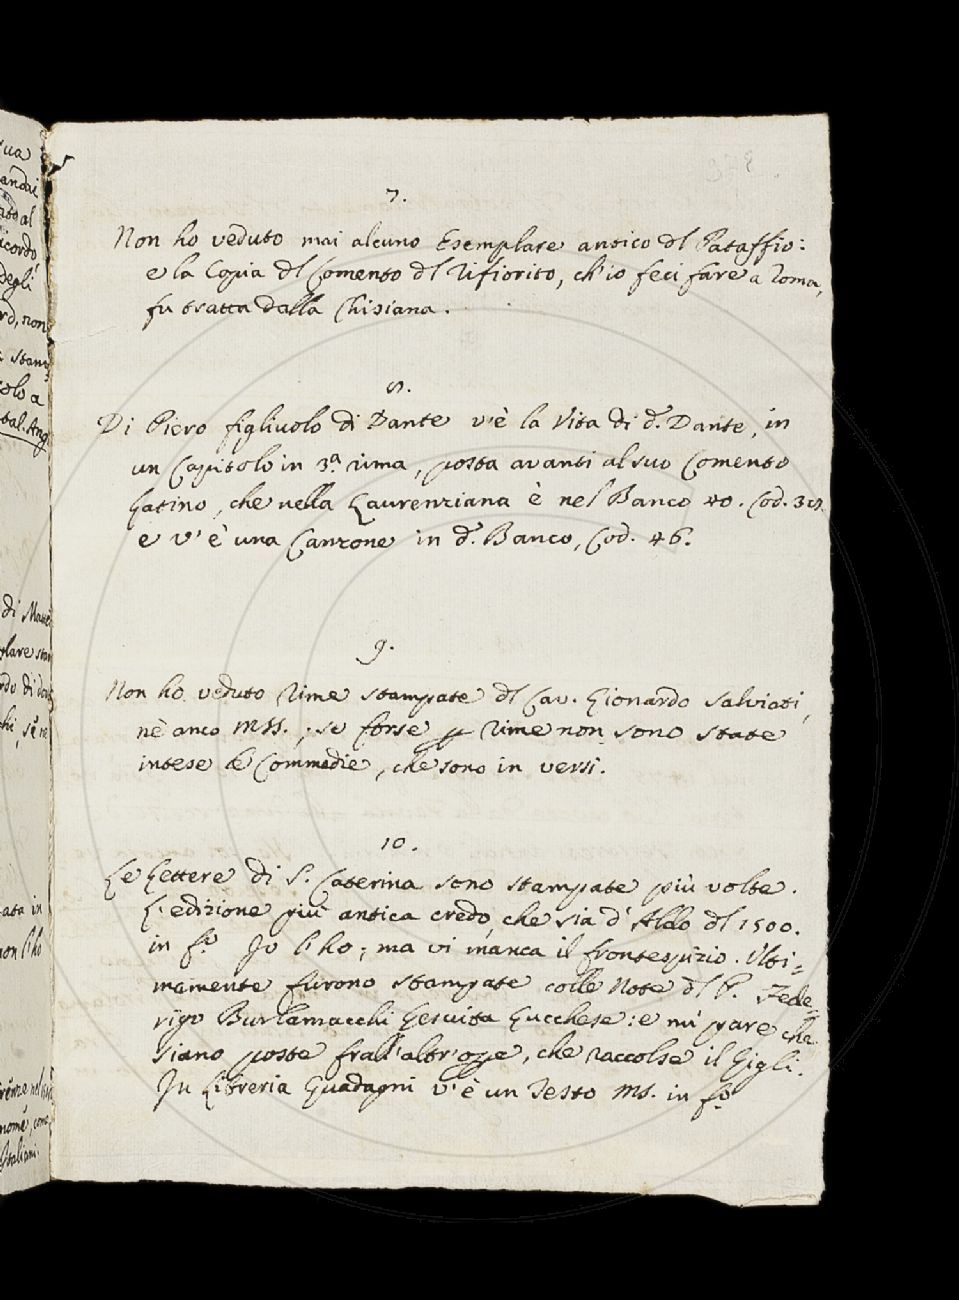 7.
Non ho veduto mai alcuno Esemplare antico dl Pataffio:
e la Copia dl Comento dl Rifiorito, ch'io feci fare a Roma,
fu tratta dalla Chisiana.
8.
Di Piero figliuolo di Dante v'è la Vita di d.º Dante, in
un Capitolo in 3.ª rima, posta avanti al suo Comento
Latino, che nella Laurenziana è nel Banco 40. Cod.
e v'è una Canzone in d.º Banco, Cod. 46.
9.
Non ho veduto Rime stampate dl Cav. Lionardo Salviati,
nè anco MSS.; se forse p Rime non sono state
intese le Commedie, che sono in versi.
10.
Le Lettere di S. Caterina sono stampate più volte.
L'edizione più antica credo, che sia d'Aldo dl 1500.
in f.º Io l'ho; ma vi manca il frontespizio. Ulti=
mamente furono stampate colle Note dl P. Fede=
rigo Burlamacchi Gesuita Lucchese: e mi pare che
siano poste frall'altr'ope, che raccolse il Gigli.
In Libreria Guadagni v'è un Testo MS. in f.º